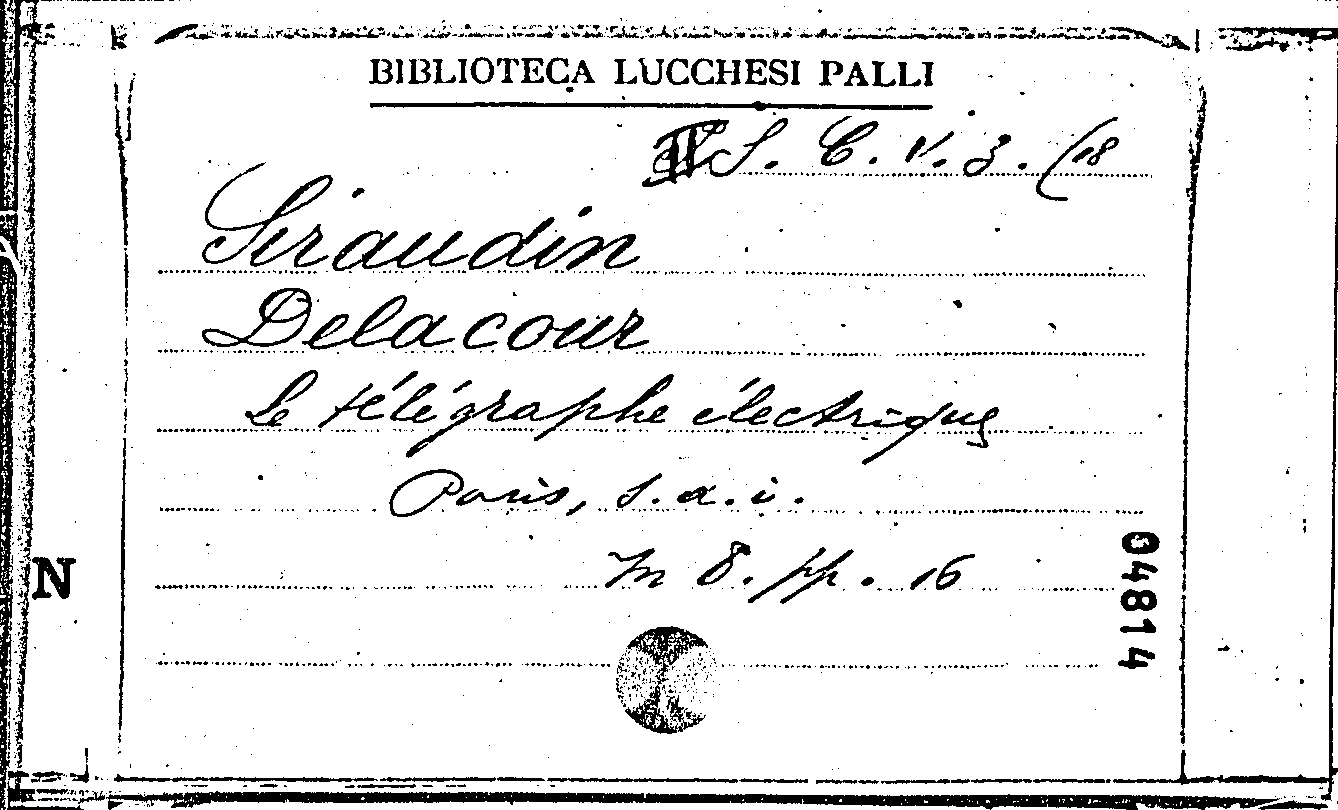 BIBLIOTECA LUCCHESI PALLI
S. C. V. 3. (18
Siraudin
Delacour
Le télégraphe électrique
Paris, s. a. i.
In 8. pp. 16
N
04814